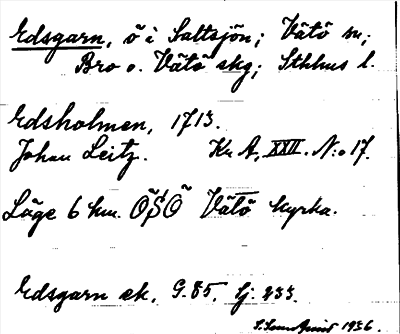 Edsgarn, ö i Saltsjön; Vätö sn;
Bro o. Vätö skg; Sthlms l.
Edsholmen, 1713.
Johan Leitz. Kr. A, XXIII. N:o 17.
Läge 6 km. ÖSÖ Vätö kyrka.
Edsgarn ek. G. 85, Ij: 233.
1936.